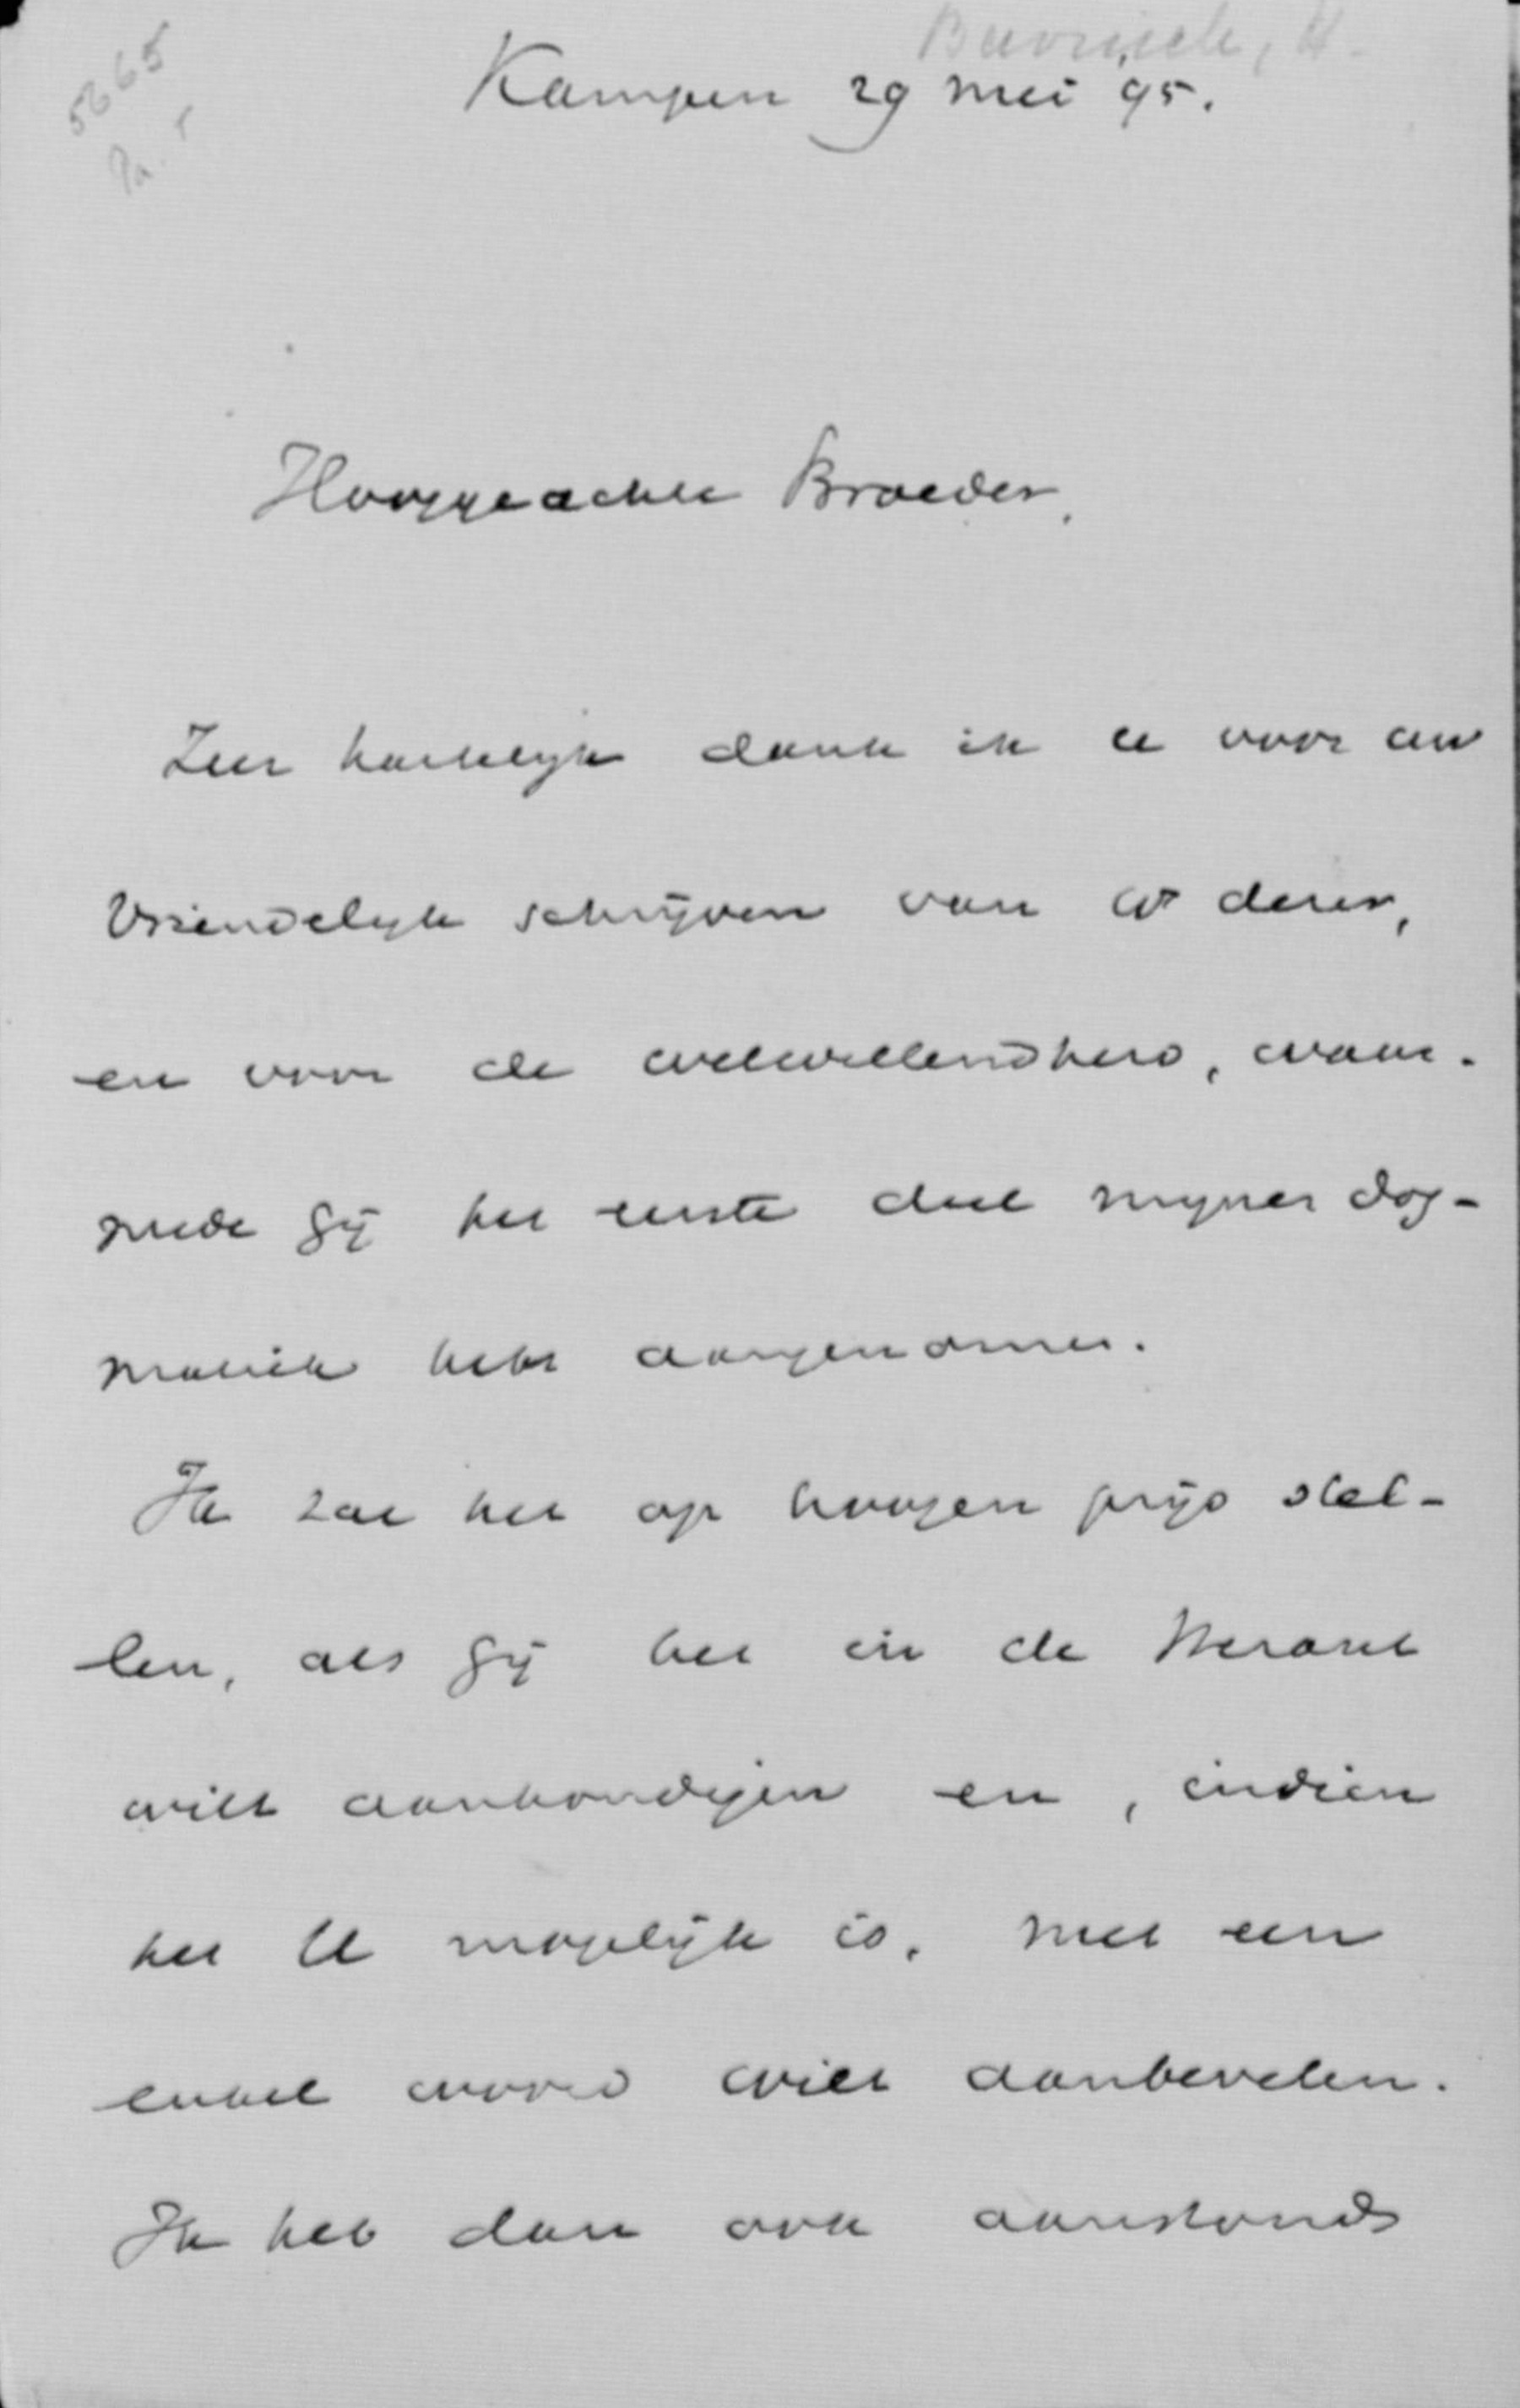 5665
Bavinck, H.
Kampen 29 Mei 95.
Hooggeachte Broeder,
Zeer hartelijk dank ik U voor uw
vriendelijk schrijven van dezer,
en voor de welwillendheid, waar-
mede gij het eerste deel mijner dog-
matiek hebt aangenomen.
Ik zal het op hoogen prijs stel-
len, als gij het in de Heraut
wilt aankondigen en, indien
het U mogelijk is, met een
enkel woord wilt aanbevelen.
Ik heb dan ook aanstonds